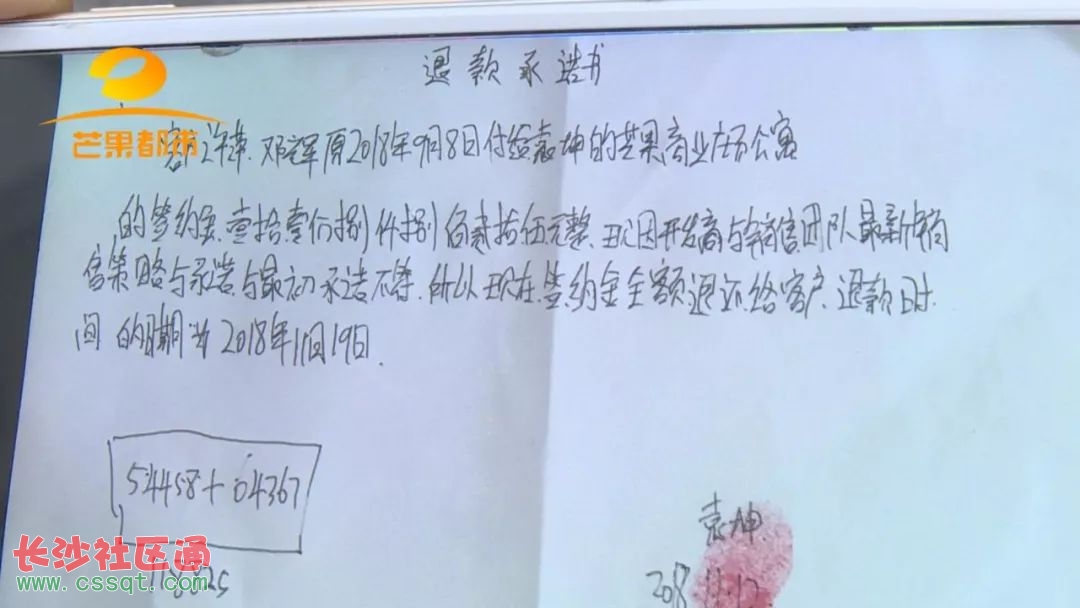 退款承诺书
芒果都市
客户许
邓 军原2018年9月8日付给袁坤的芒果商业 公寓
的签约金壹拾壹 捌仟捌佰贰拾伍元整.现因开发商与销售团队最新
售策略与承诺与最初承诺不符.所以现在签约金全额退还给客户.退款时
间的日期为2018年11月19日.
54458+
袁坤
118825
2018.11.17
长沙社区通
www.cssqt.com